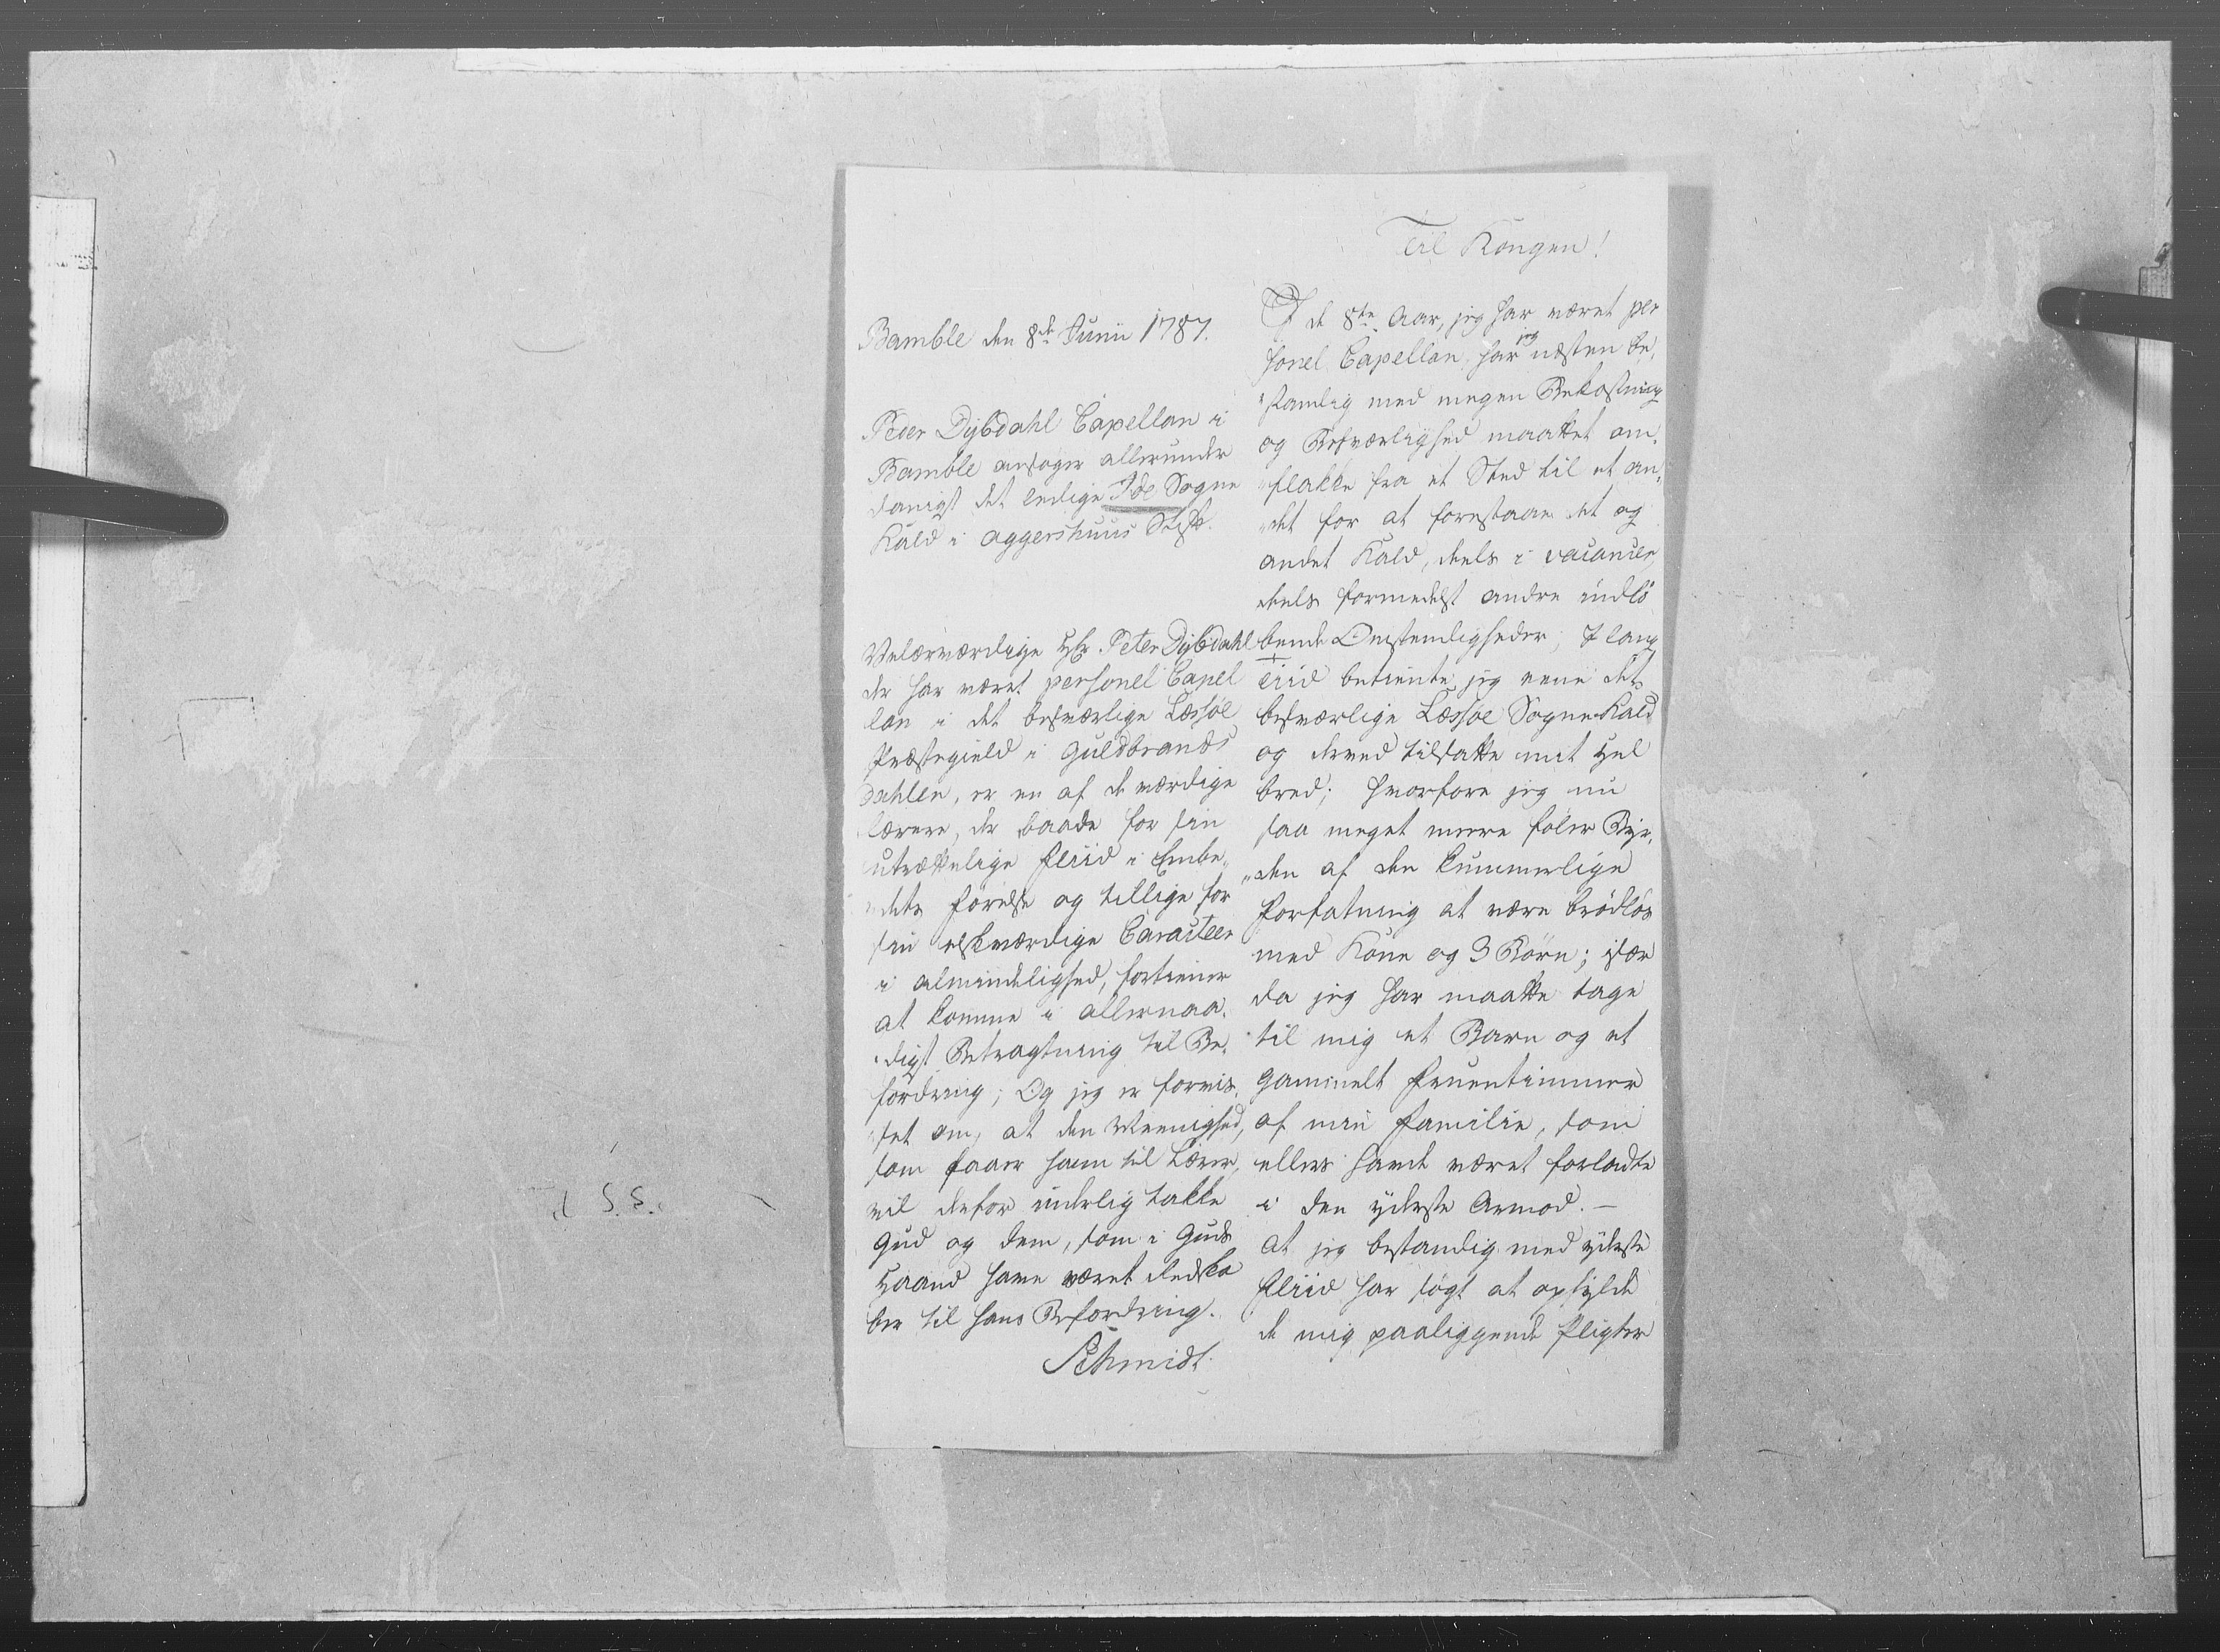 Til Kongen!
Bamble den 8de Junii 1787.
Peter Dybdahl Capellan i
Bamble ansøger allerunder
danigst det ledige Ide Sogne
Kald i Aggershuus Stift.
Velærværdige Hr. Peter Dybdahl
der har været personel Capel
lan i det besværlige Læssøe
Præstegield i Guldbrands
Dahlen, er en af de værdige
Lærere, der baade for sin
utrættelige Fliid i Embe„
„dets Førelse og tillige for
sin elskværdige Caracteer
i Almindelighed, fortiener
at komme i allernaa„
„digst Betragtning til Be„
fordring; Og jeg er forvis„
„set om, at den Meenighed,
som faaer ham til Lærer,
vil derfor inderlig takke
Gud og dem, som i Guds
Haand have været Redska
ber til hans Befordring.
Schmidt.
I de 8te Aar, jeg har været per
sonel Capellan har jeg næsten be„
„standig med megen Bekostning
og Besværlighed maattet om„
„flakke fra et Sted til et an„
„det for at forestaae det og
andet Kald, deels i vacancer,
deels formedelst andre indlø
bende Omstendigheder; I lang
Tiid betiente jeg eene det
besværlige Læssøe Sogne Kald
og derved tilsatte mit Hel
bred; hvorfore jeg nu
saa meget meere føler Byr„
„den af den kummerlige
Forfatning at være brødløs
med Kone og 3 Børn; især
da jeg har maatte tage
til mig et Barn og et
gammelt Fruentimmer
af min Familie, som
ellers havde været forladte
i den yderste Armod. —
At jeg bestandig med yderste
Fliid har søgt at opfylde
de mig paaliggende Pligter